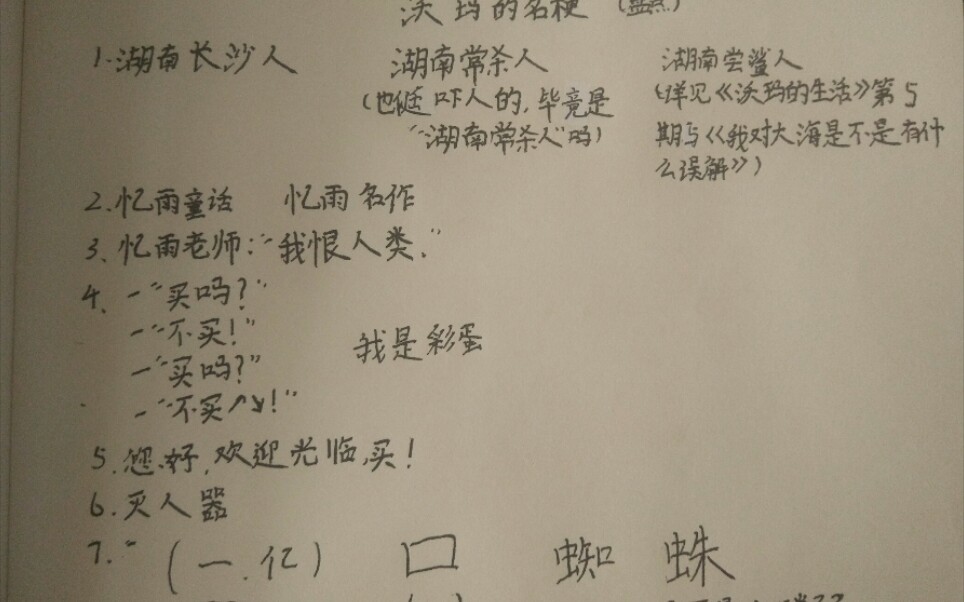 沃玛的名梗（盘点）
1.湖南长沙人 湖南常杀人 湖南尝鲨人
（也挺吓人的,毕竟是"湖南常杀人"吗）
（详见《沃玛的生活》第5期与《我对大海是不是有什么误解》）
2.忆雨童话 忆雨名作
3、忆雨老师:"我恨人类."
4、—"买吗?"
—"不买!"
—"买吗?"
—"不买↗↘!"
我是彩蛋
5.您好,欢迎光临,买!
6.灭人器
7."（一.亿） 口 蜘蛛